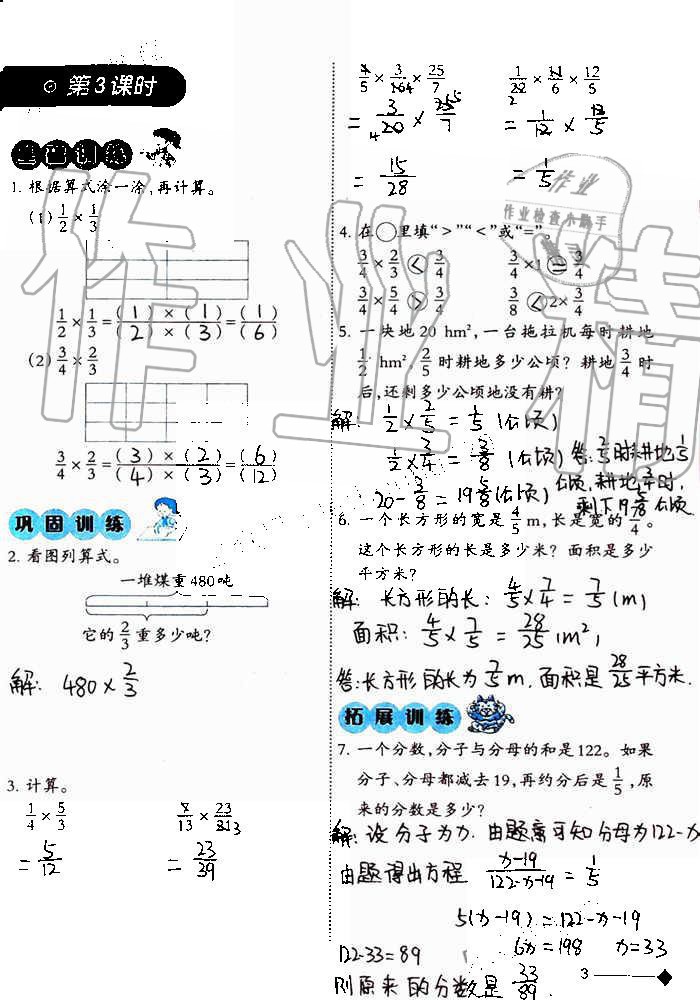 第3课时
基础训练
1. 根据算式涂一涂,再计算。
(1) 1/2 × 1/3
1/2 × 1/3 = (1)/(2) × (1)/(3) = (1)/(6)
(2) 3/4 × 2/3
3/4 × 2/3 = (3)/(4) × (2)/(3) = (6)/(12)
巩固训练
2. 看图列算式。
一堆煤重480吨
它的 2/3 重多少吨?
解: 480 × 2/3
3. 计算。
1/4 × 5/3
= 5/12
= 23/39
= 15/28
= 1/12 × 12/5
= 1/5
4. 在○里填“>”“<”或“=”。
3/4 × 2/3 < 3/4  3/4 × 1 = 3/4
3/4 × 5/4 > 3/4  3/8 < 2 × 3/4
5. 一块地20 hm², 一台拖拉机每时耕地
1/2 hm², 2/5 时耕地多少公顷? 耕地 3/4 时
后,还剩多少公顷地没有耕?
解: 1/2 × 2/5 = 1/5 (公顷)
1/2 × 3/4 = 3/8 (公顷)
20 - 3/8 = 19 5/8 (公顷)
答: 2/5 时耕地 1/5
公顷, 耕地 3/4 时,
剩下 19 5/8 公顷
6. 一个长方形的宽是 4/5 m,长是宽的 7/4。
这个长方形的长是多少米? 面积是多少
平方米?
解: 长方形的长: 4/5 × 7/4 = 7/5 (m)
面积: 4/5 × 7/5 = 28/25 (m²)
答: 长方形的长为 7/5 m, 面积是 28/25 平方米.
拓展训练
7. 一个分数,分子与分母的和是122。如果
分子、分母都减去19,再约分后是 1/5,原
来的分数是多少?
解: 设分子为x. 由题意可知分母为122-x
由题得出方程 x-19/122-x-19 = 1/5
5(x-19) = 122-x-19
6x = 198  x = 33
122-33=89
则原来的分数是 33/89.
3
作业
作业检查小助手
作业精